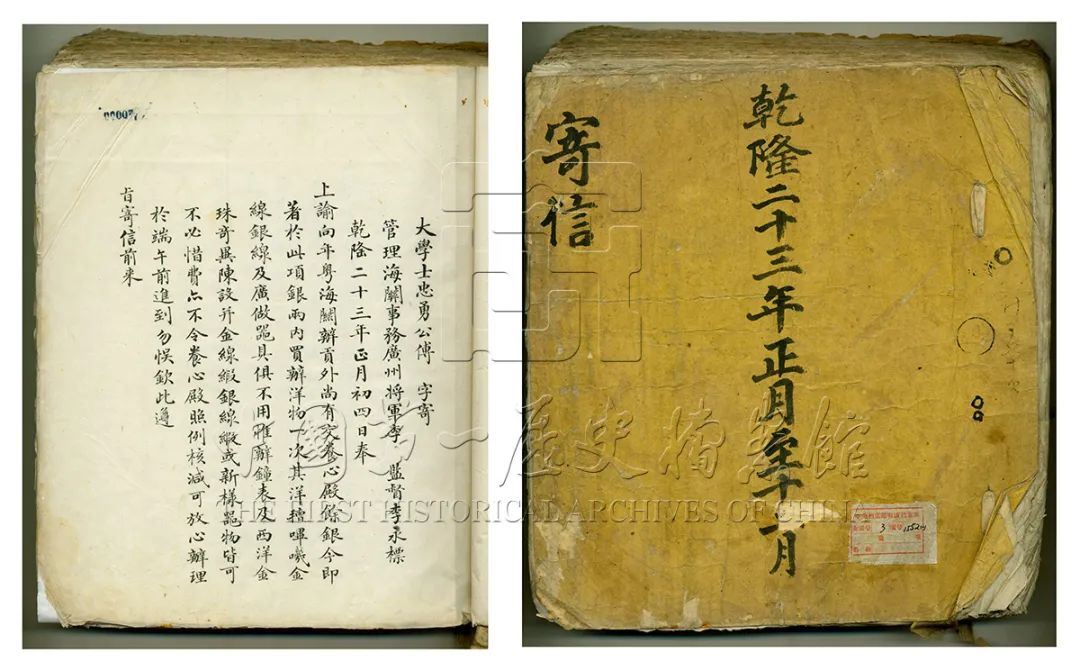 大學士忠勇公傅 字寄
管理海關事務廣州將軍李 監督李永標
乾隆二十三年正月初四日奉
上諭向年粤海關辦貢外尚有交養心殿餘銀今即
著於此項銀兩内買辦洋物一次其洋氊嗶嘰金
線銀線及廣做器具俱不用惟辦鐘表及西洋金
珠奇異陳設并金線緞銀線緞或新樣器物皆可
不必惜費亦不令養心殿照例核減可放心辦理
於端午前進到勿悞欽此遵
旨寄信前来
乾隆二十三年正月至十二月
寄信
中国第一歷史檔案館
THE FIRST HISTORICAL ARCHIVES OF CHINA